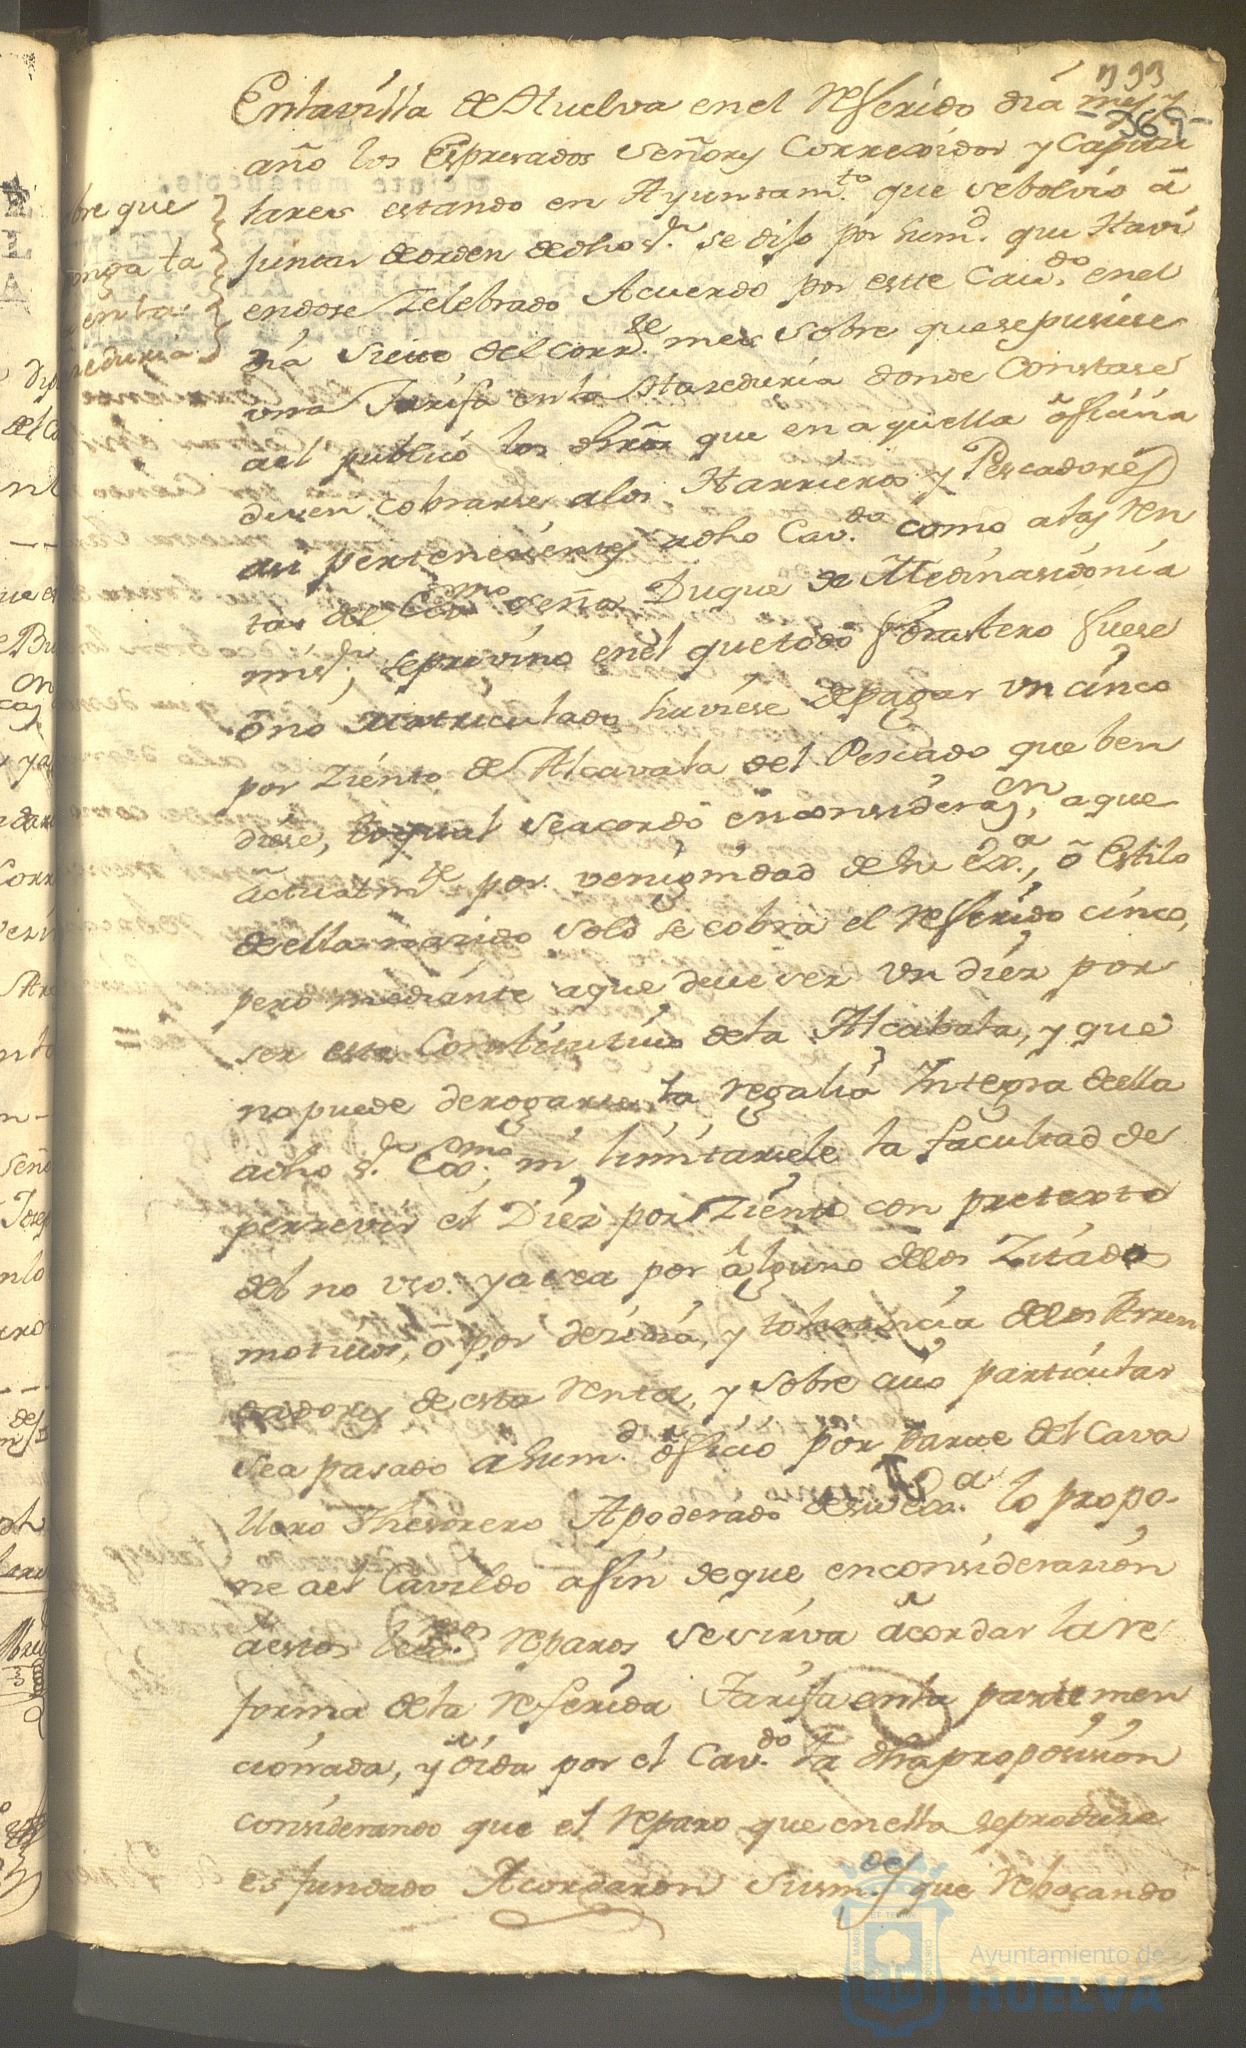 993
369
En la villa de Huelva en el referido dia mes y
año los Espresados señores Correxidor y Capitu
lares estando en Ayuntam.to que se bolvio â
juntar de orden de dho s.r se dijo por su m.d que Havi
endose Zelebrado Acuerdo por este Cav.do en el
dia siete del corr.te mes sobre que se pusiese
una Tarifa en la Mareduria donde Constase
ael publico los dhros que en aquella ôficina
deven cobrarse a los Harrieros y Pescadores
asi pertenecientes a dho Cav.do como a las Ren
tas del Ex.mo señor Duque de Medinasidonia
mi s.r, se previno en el que todo forastero fuese
ôno matriculado huviese de pagar un cinco
por Ziento de Alcavala del Pescado que ben
diese, lo qual se acordô en consideraz.on, a que
âctualm.te por venignidad de su Ex.a, ô Estilo
de ella nasido solo se cobra el referido cinco,
pero mediante a que deve ser un diez por
ser este Constitutivo de la Alcabala, y que
no puede derogarse la regalia Integra de ella
a dho s.r Ex.mo, ni limitarsele la facultad de
perzevir el Diez por Ziento con pretexto
del no uso. ya sea por âlguno de los Zitados
motivos, ô por desidia, y tolerancia de los Arren
dadores de esta Renta, y sobre cuio particular
sea pasado a su m.d ôficio por parte del Cava
llero Thesorero Apoderado de su Ex.a lo propo-
ne ael Cavildo a fin de que en consideracion
a estos reparos se sirva âcordar la re
forma de la referida Tarifa en la parte men
cionada, y ôida por el Cav.do la dha proposision
considerando que el reparo que en ella se produse
es fundado Acordaron sus m.des que rebocando
bre que
onga la
en la
reduria
Ayuntamiento de
HUELVA